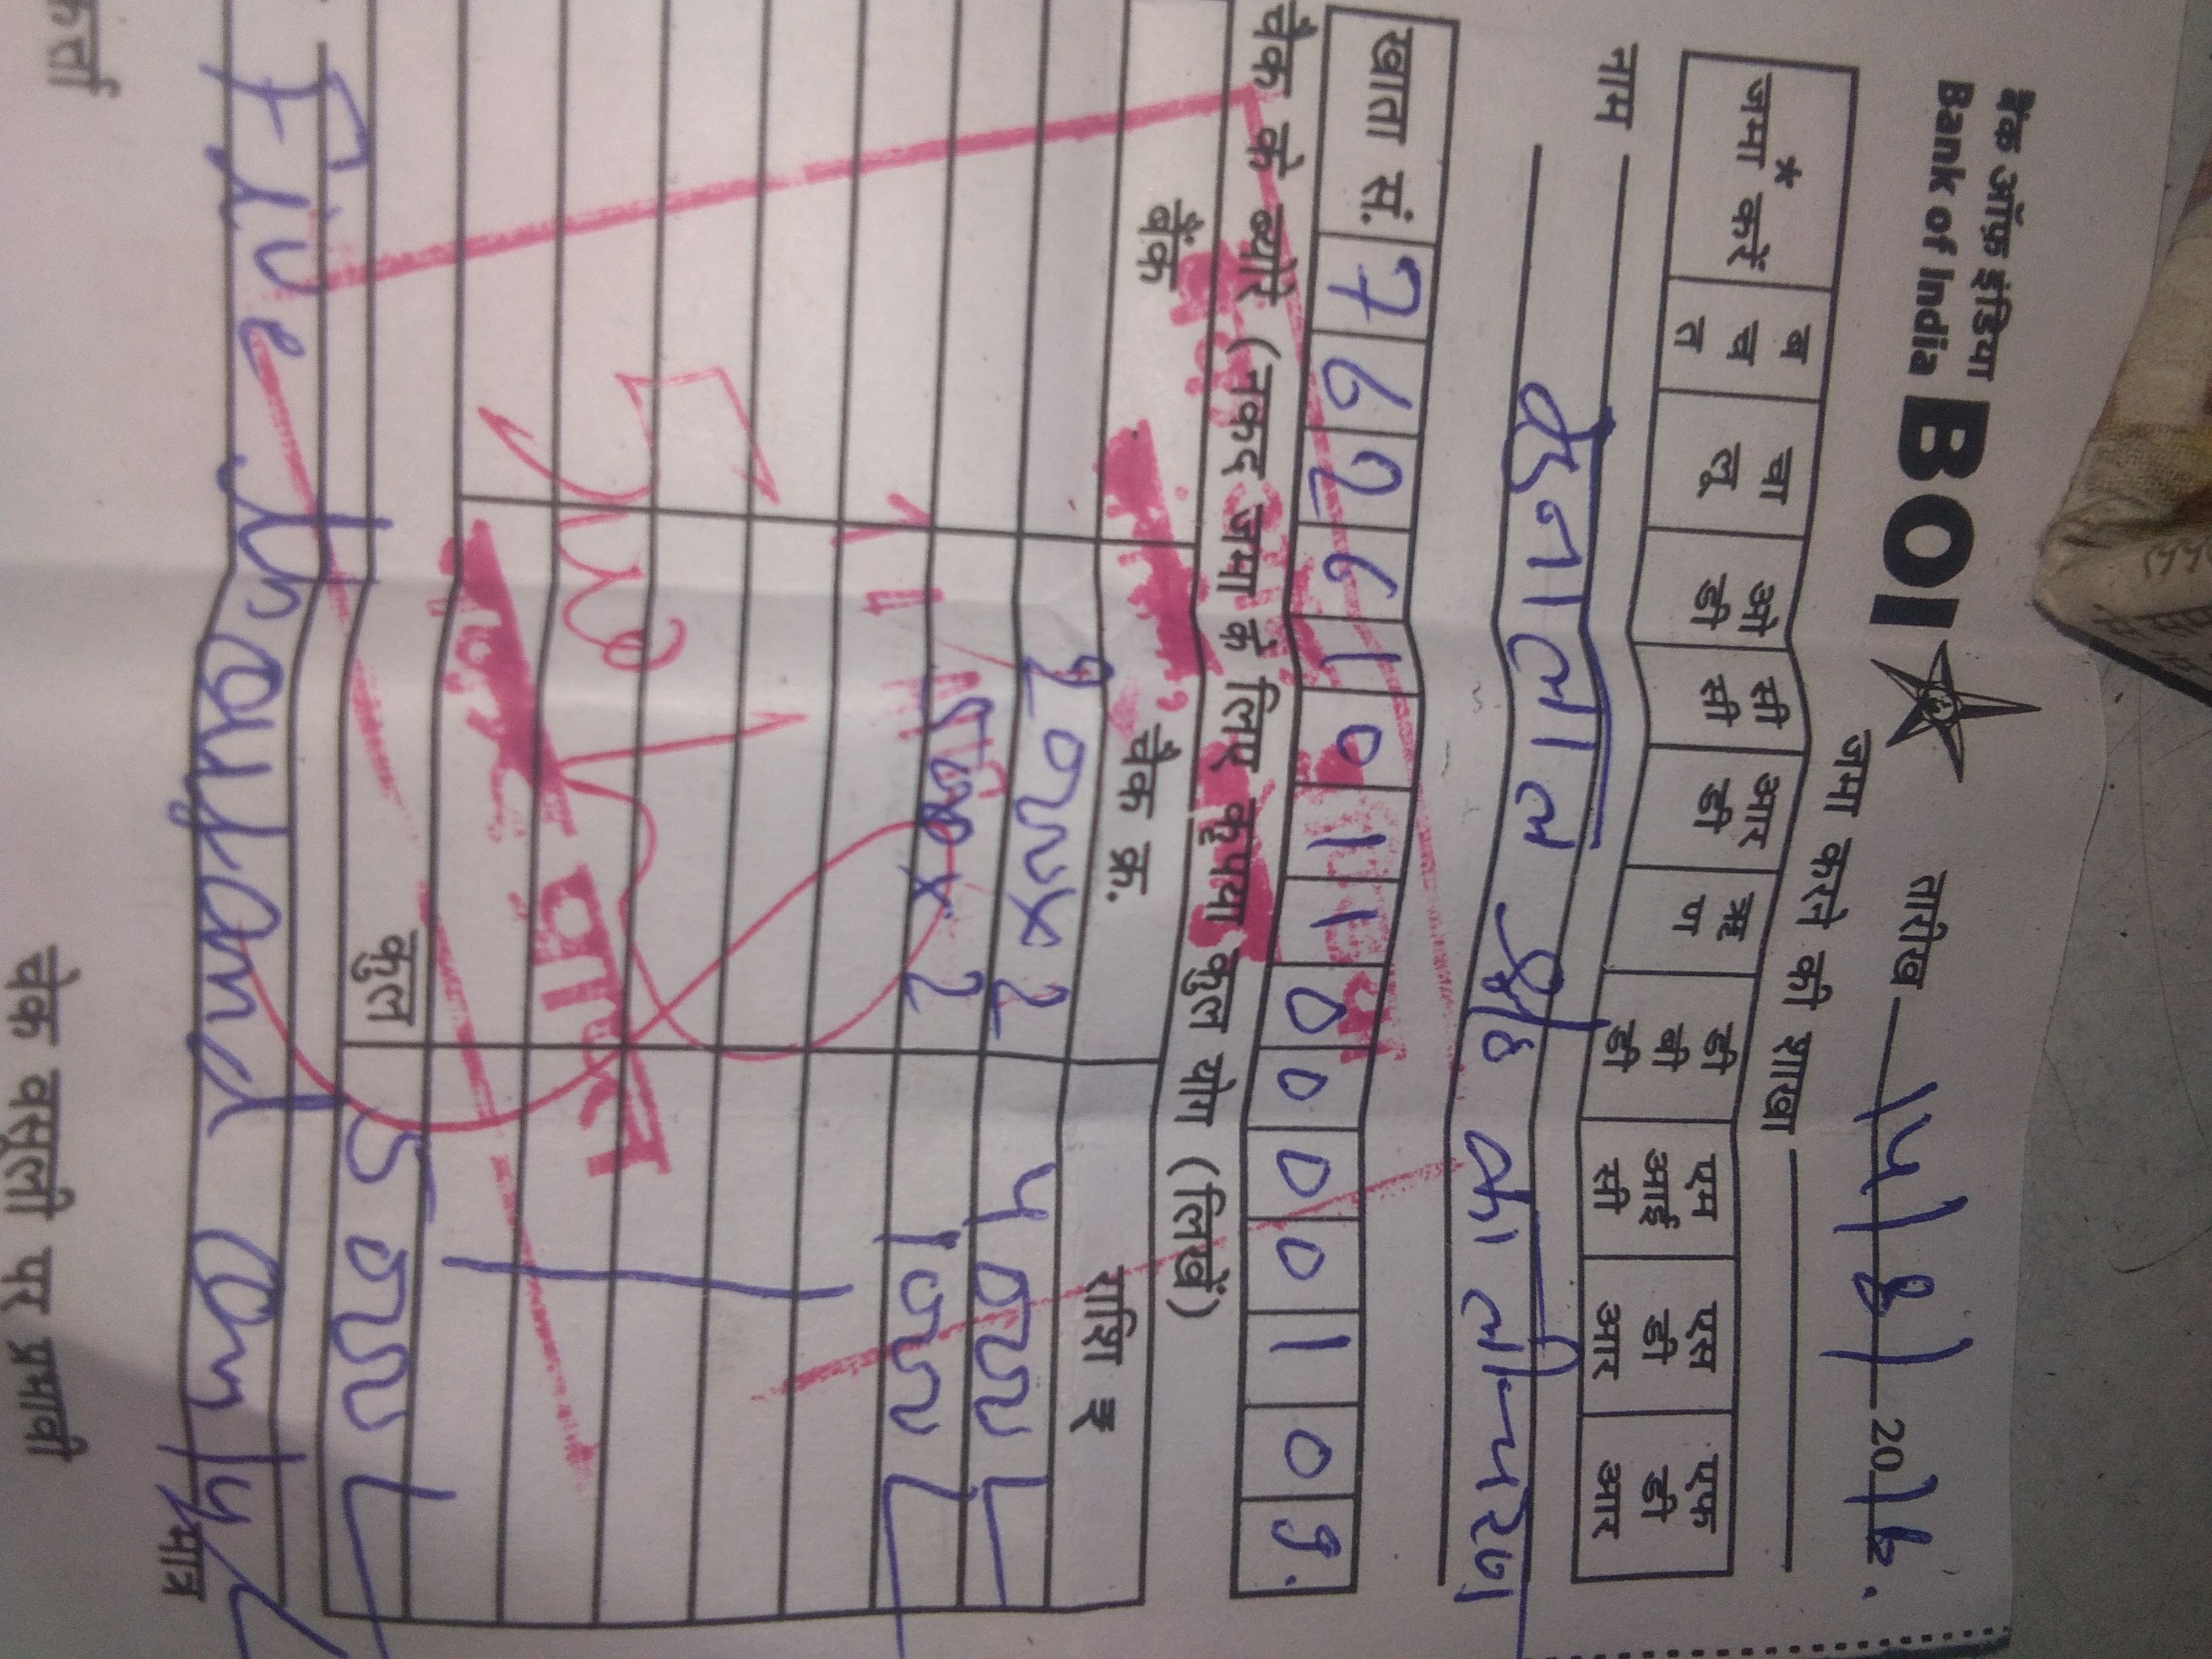 बैंक ऑफ इंडिया
Bank of India BOI
तारीख 14/8/2018.
जमा करने की शाखा
* जमा करें बचत चालू ओडी सीसी आरडी ऋण डीबीडी एमआईसी एसडीआर एफडीआर
नाम
खाता सं. 762610110000109.
चैक के ब्योरे (नकद जमा के लिए कृपया कुल योग (लिखें)
बैंक चैक क्र. राशि ₹
2000x2 4000/-
500x2 1000/-
प्राप्त
कुल 5000/-
Five thousand only मात्र
कर्ता चेक वसूली पर प्रभावी